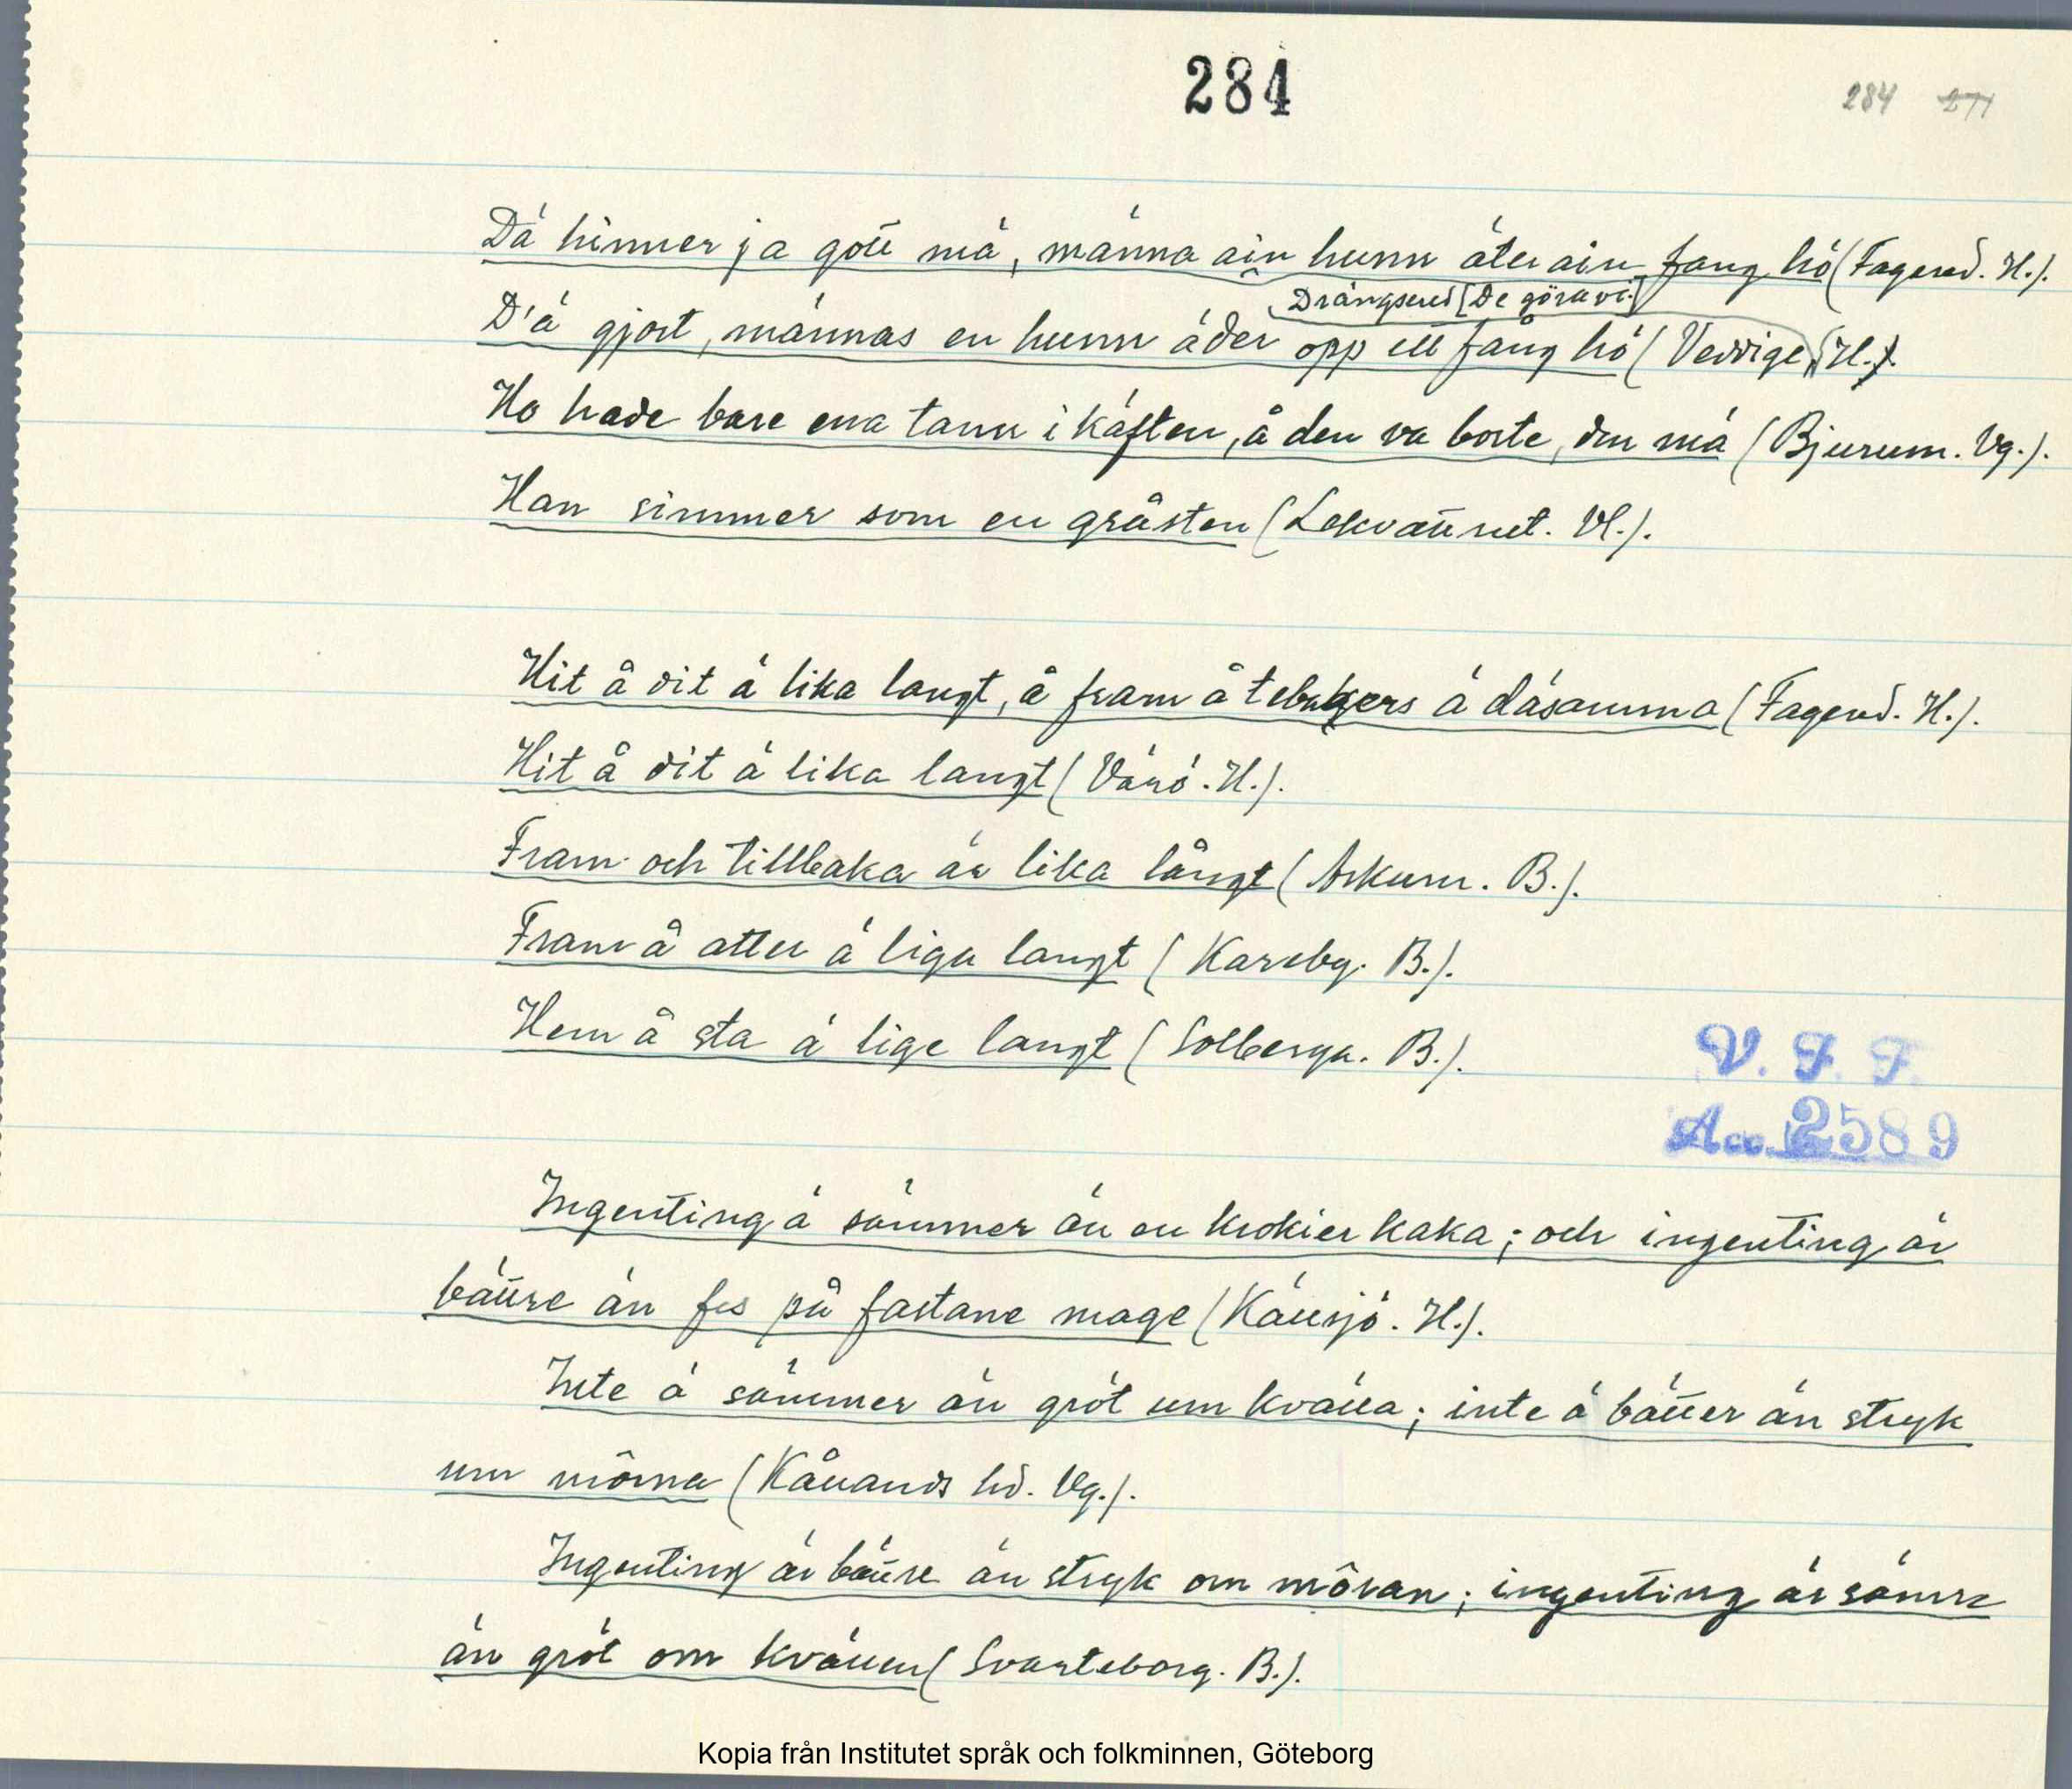 284
284 271
Dä hinner ja gött mä, männa ain hunn äter ain fang hö (Fagered. H.).
Drängsered [De göra vi.]
D'ä gjort, männas en hunn äder opp ett fång hö (Veddige, H.).
Ho hade bare ena tann i käften, å den va borte, den mä (Bjurum. Vg.).
Han simmer som en gråsten (Lekvattnet. Vl.).
Hit å dit ä lika langt, å fram å tebakers ä däsamma (Fagered. H.).
Hit å dit ä lika langt (Värö. H.).
Fram och tillbaka är lika långt (Askum. B.).
Fram å atter ä liga langt (Kareby. B.).
Hem å sta ä lige langt (Solberga. B.).
V. F. F.
Acc. 2589
Ingenting ä sämmer än en krokier kaka; och ingenting är
bättre än fes på fastane mage (Källsjö. H.).
Inte ä sämmer än gröt um kvälla; inte ä bätter än stryk
um môrna (Kållands hd. Vg.).
Ingenting är bättre än stryk om môran; ingenting är sämre
än gröt om kvällen (Svarteborg. B.).
Kopia från Institutet språk och folkminnen, Göteborg